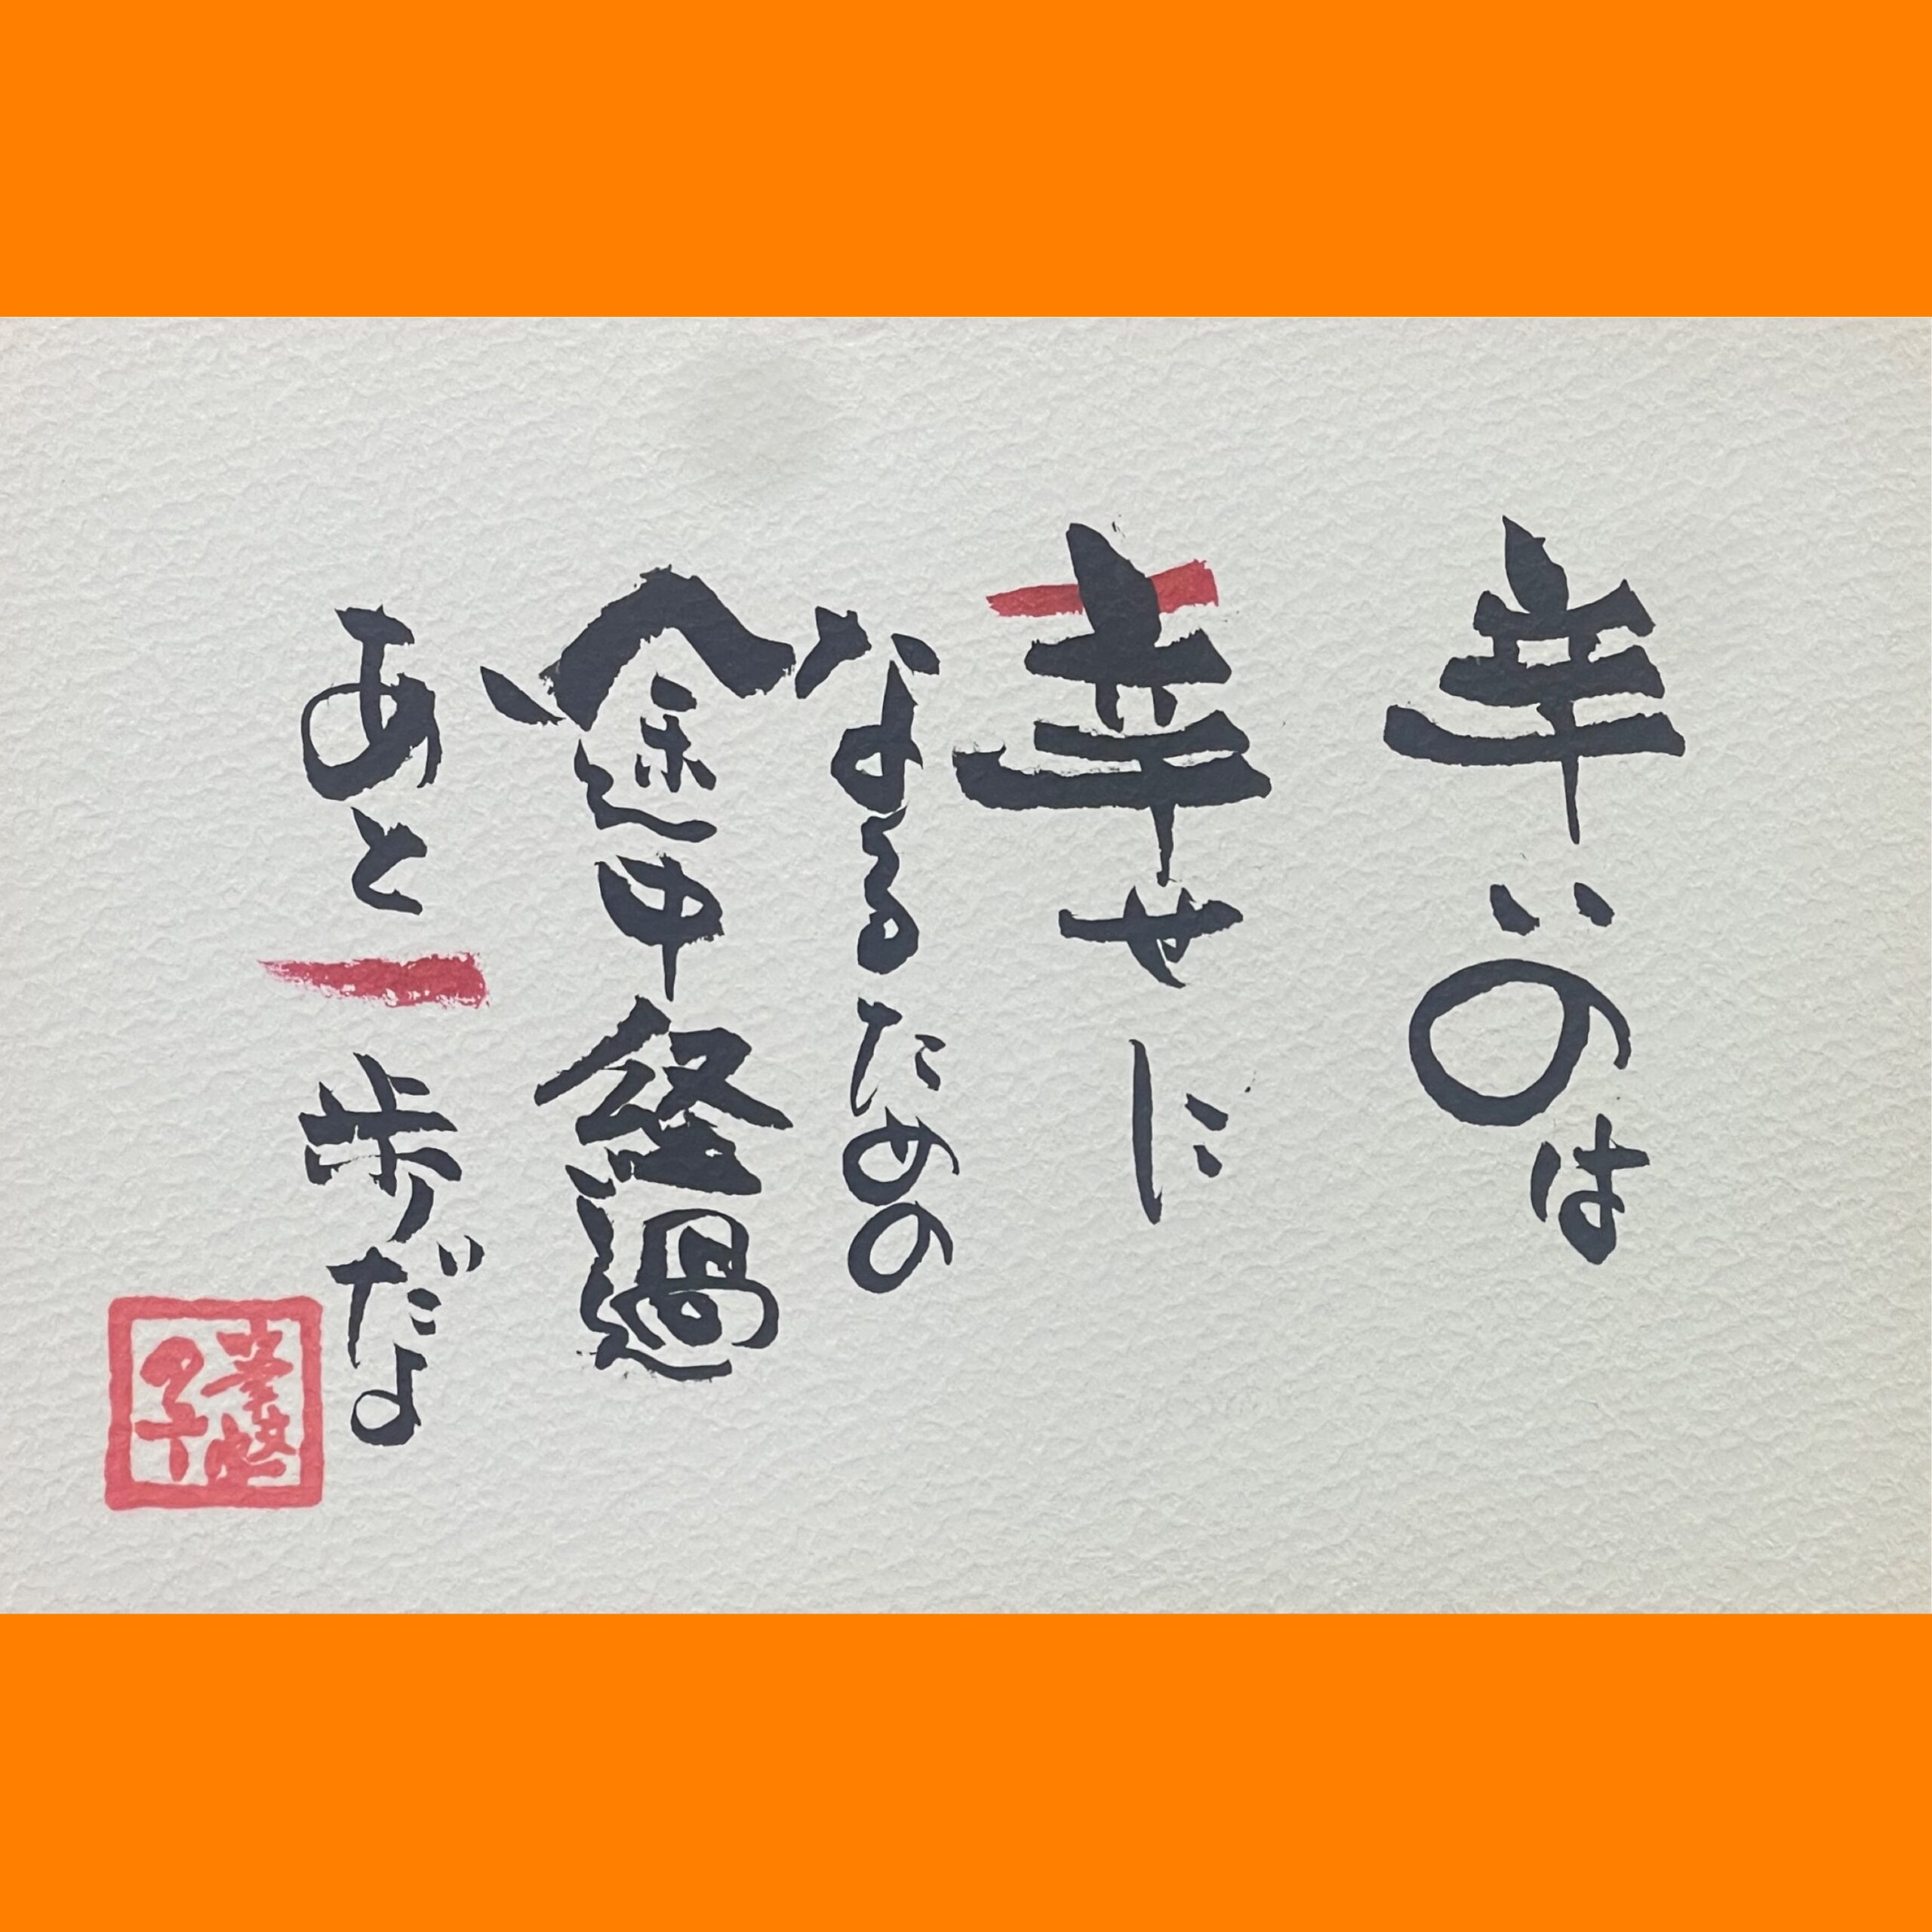 辛いのは
幸せに
なるための
途中経過
あと一歩だよ